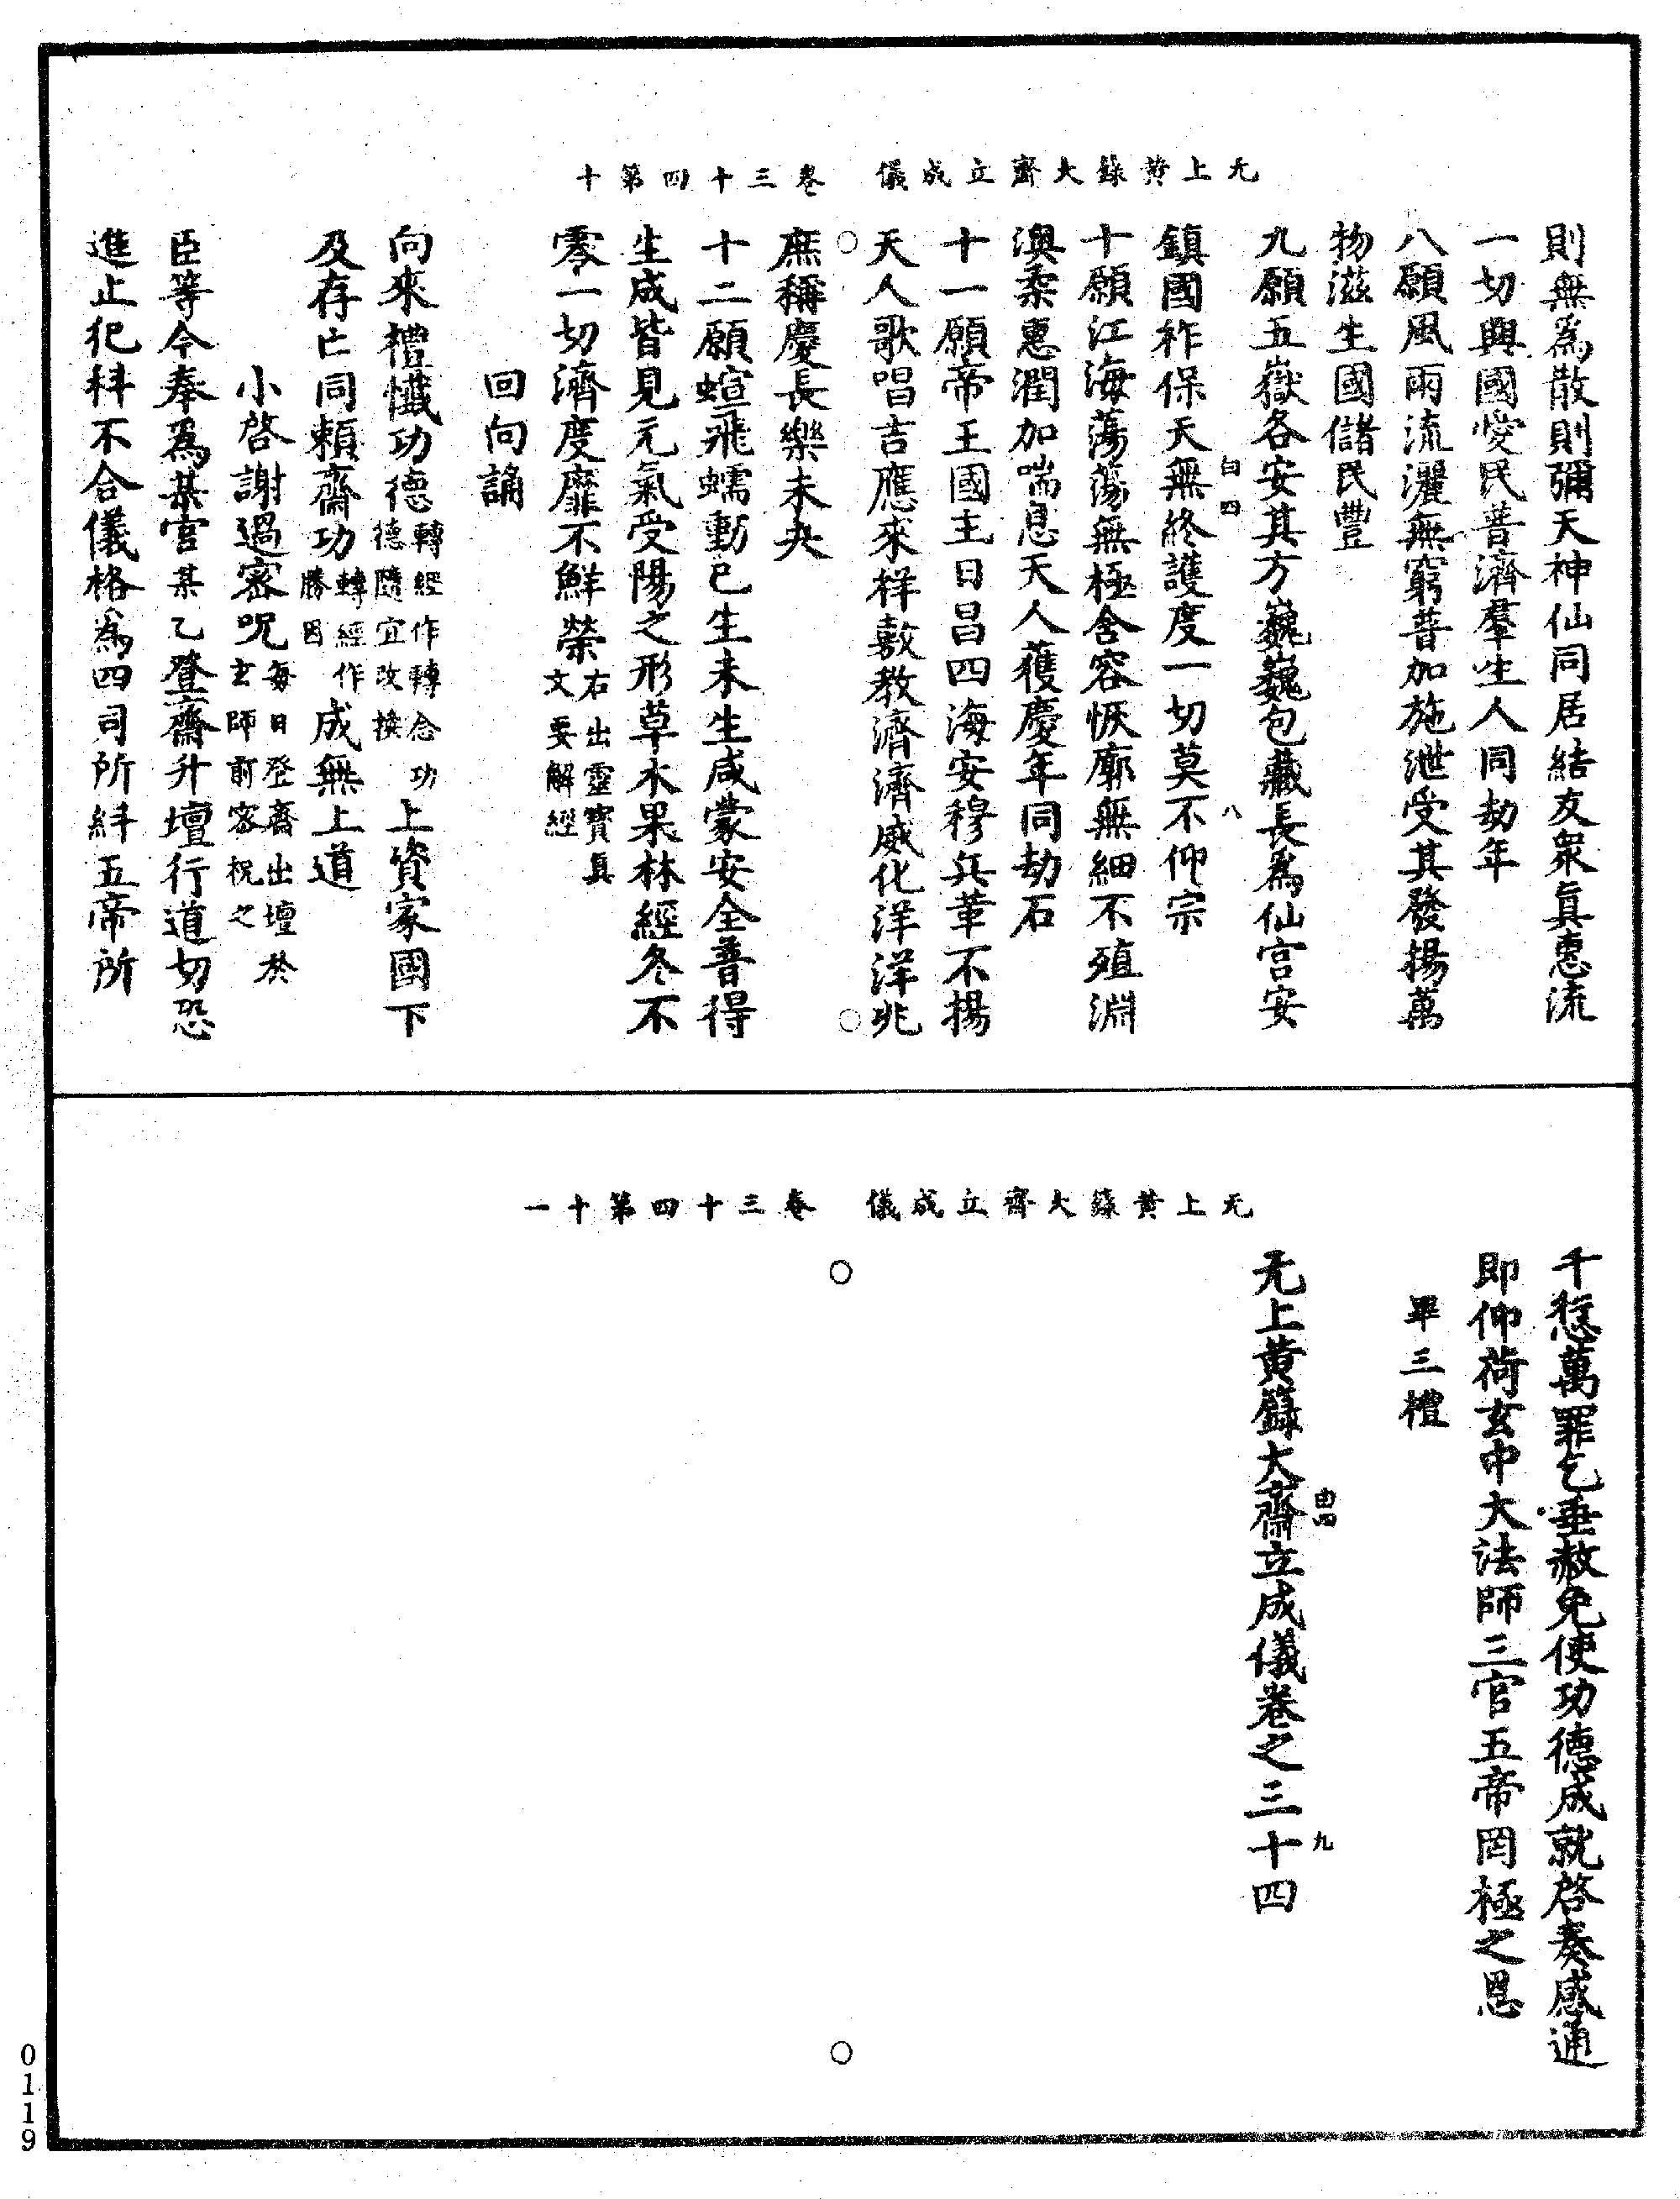 无上黃籙大齋立成儀　卷三十四第十
則無爲散則彌天神仙同居結友衆眞惠流
一切興國愛民普濟羣生人同劫年
八願風雨流灑無窮普加施泄受其發揚萬
物滋生國儲民豐
九願五嶽各安其方巍巍包藏長爲仙宮安
白四　八
鎮國祚保天無終護度一切莫不仰宗
十願江海蕩蕩無極含容恢廓無細不殖淵
澳柔惠潤加喘息天人獲慶年同劫石
十一願帝王國主日昌四海安穆兵革不揚
天人歌唱吉應來祥敷教濟濟威化洋洋兆
庶稱慶長樂未央
十二願蝖飛蠕動已生未生咸蒙安全普得
生成皆見元氣受陽之形草木果林經冬不
零一切濟度靡不鮮榮右出靈寶眞文要解經
回向誦
向來禮懺功德轉經作轉念功德隨宜改換上資家國下
及存亡同賴齋功轉經作勝因成無上道
小啓謝過密呪每日登齋出壇於玄師前密祝之
臣等今奉爲某官某乙登齋升壇行道切恐
進止犯科不合儀格爲四司所糾五帝所
无上黃籙大齋立成儀　卷三十四第十一
千愆萬罪乞垂赦免使功德成就啓奏感通
即仰荷玄中大法師三官五帝罔極之恩
畢三禮
四　九
无上黃籙大齋立成儀卷之三十四
0119